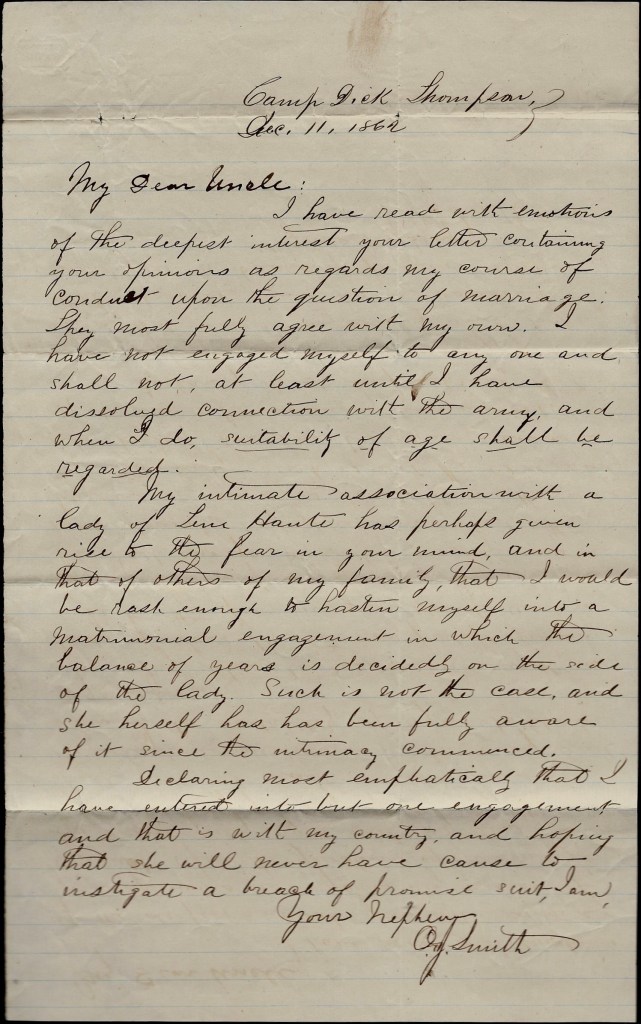 Camp Dick Thompson,
Dec. 11, 1862
My Dear Uncle:
I have read with emotions
of the deepest interest your letter containing
your opinions as regards my course of
conduct upon the question of marriage.
They most fully agree with my own. I
have not engaged myself to any one and
shall not, at least until I have
dissolved connection with the army, and
when I do, suitability of age shall be
regarded.
My intimate association with a
lady of Terre Haute has perhaps given
rise to the fear in your mind, and in
that of others of my family, that I would
be rash enough to hasten myself into a
matrimonial engagement in which the
balance of years is decidedly on the side
of the lady. Such is not the case, and
she herself has has been fully aware
of it since the intimacy commenced.
Declaring most emphatically that I
have entered into but one engagement
and that is with my country, and hoping
that she will never have cause to
instigate a breach of promise suit, I am,
Your Nephew
O.J. Smith